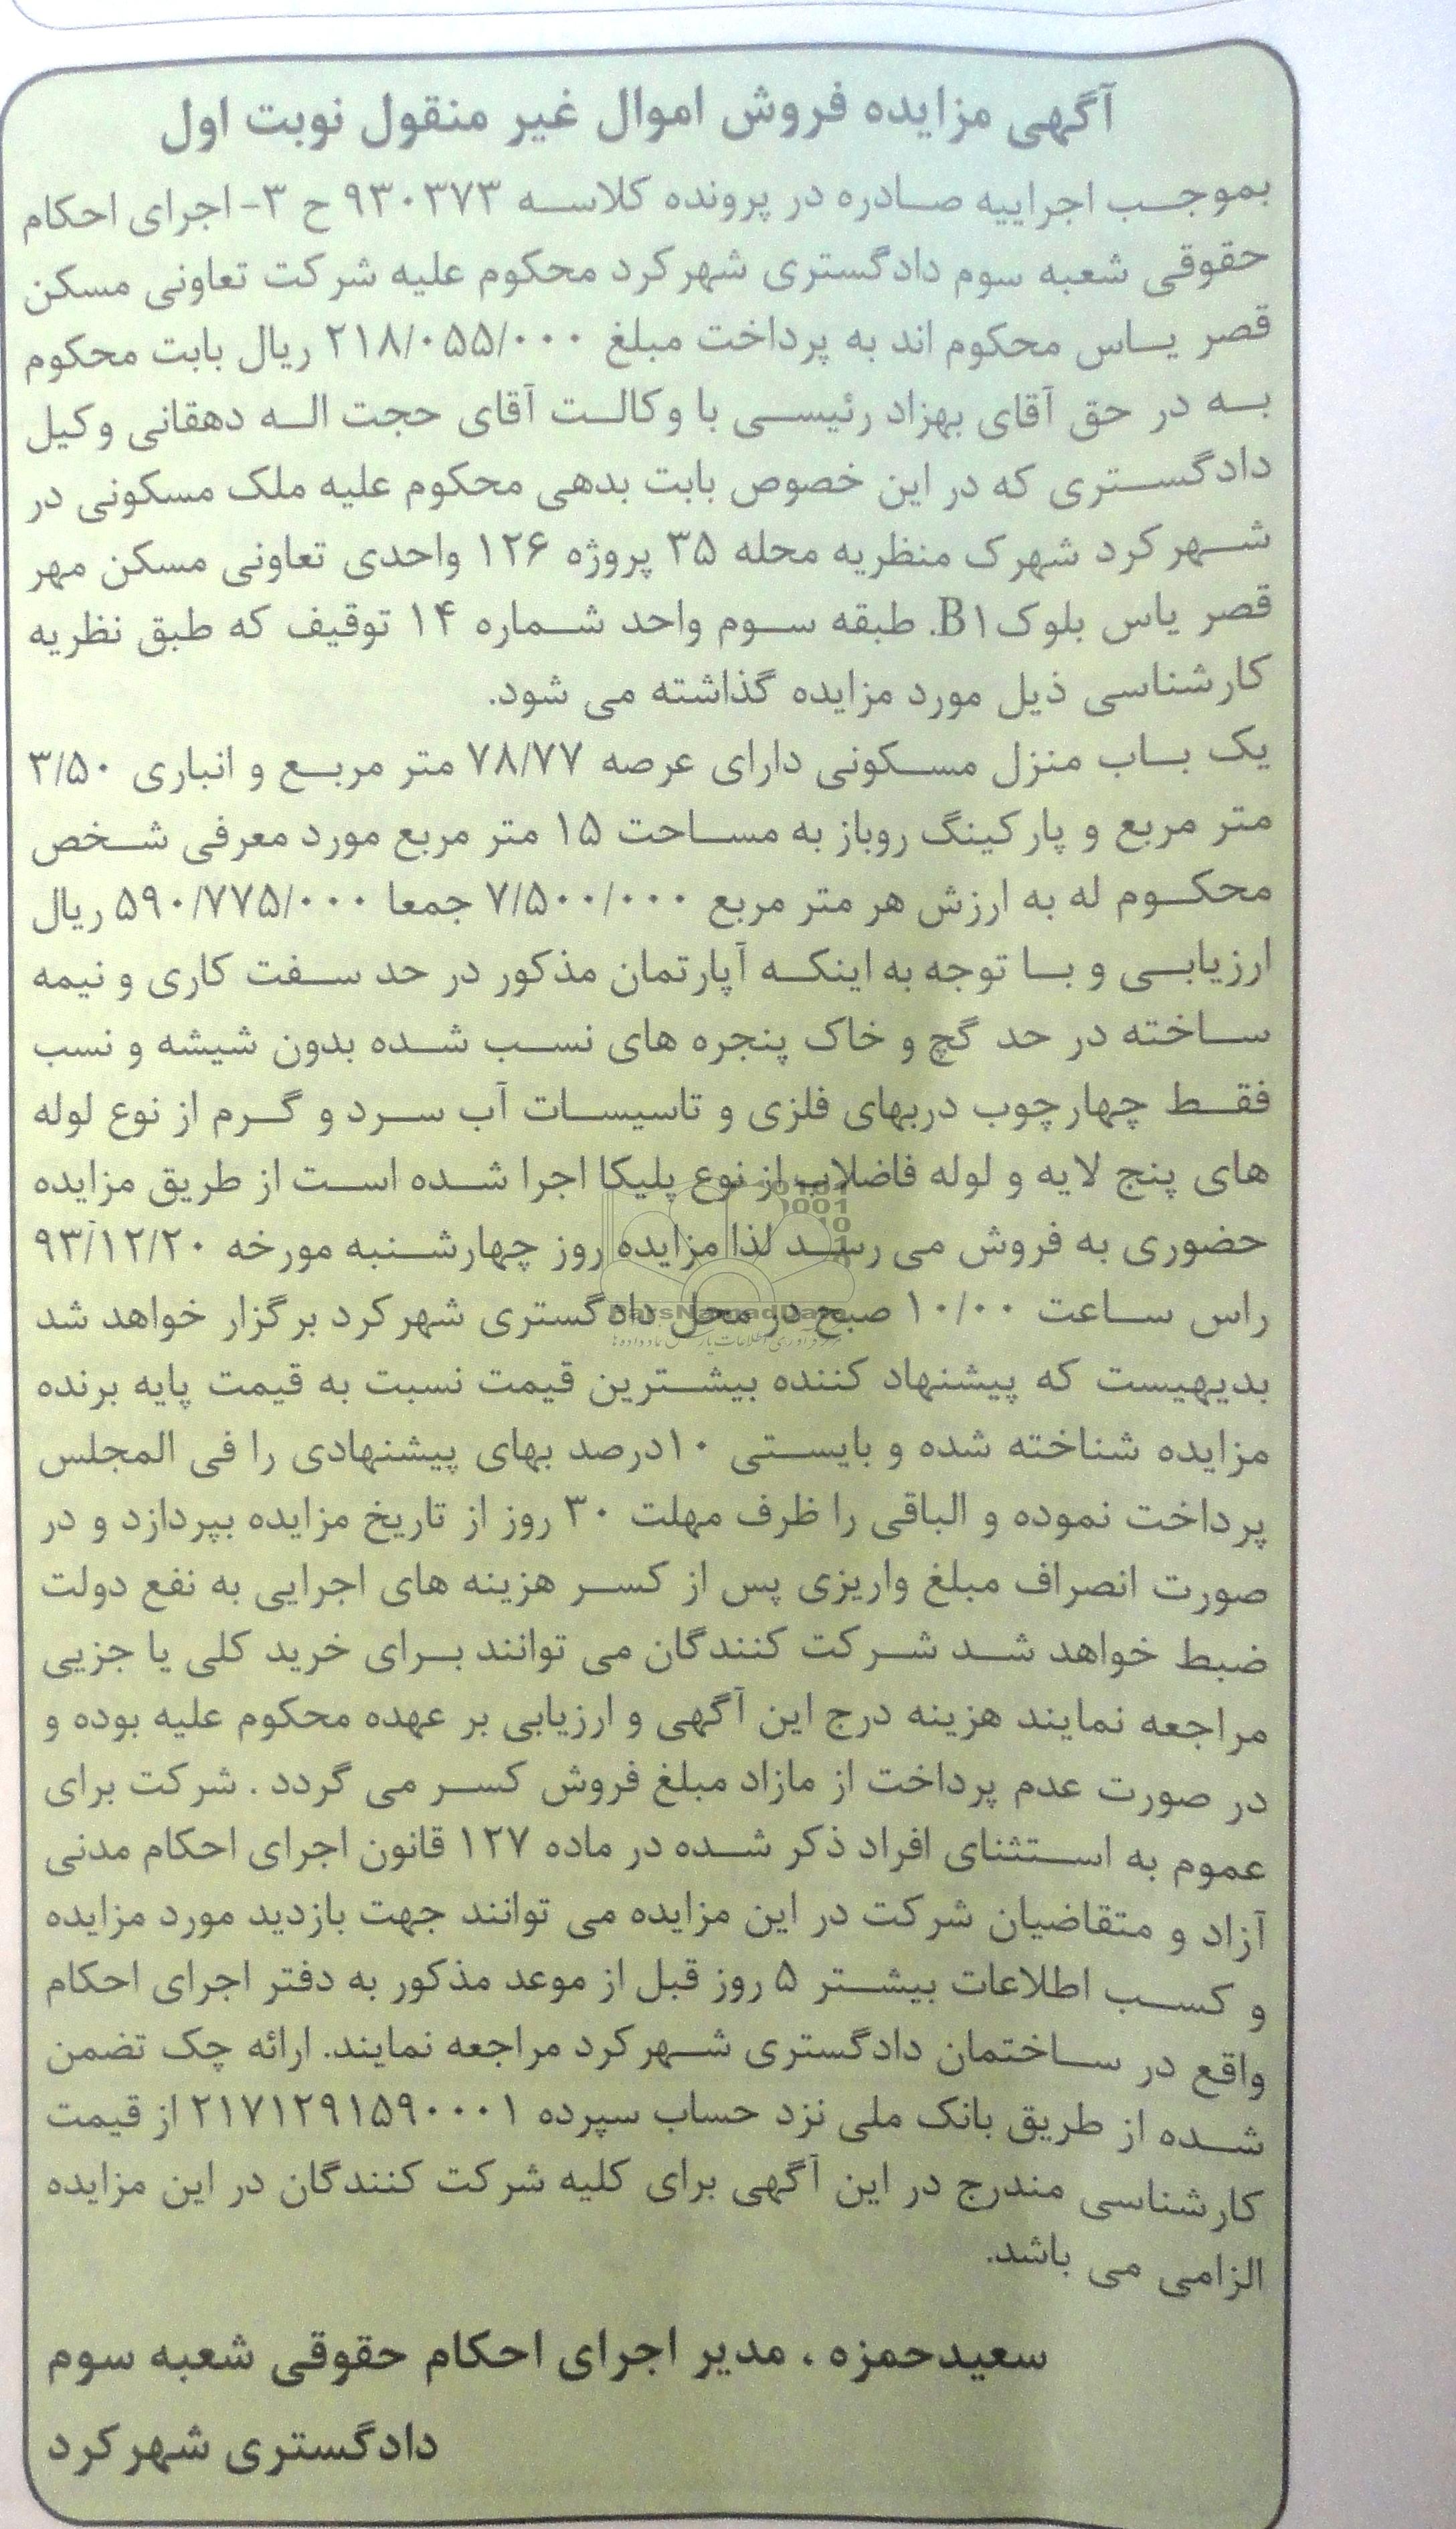 آگهی مزایده فروش اموال غیر منقول نوبت اول
بموجب اجراییه صادره در پرونده کلاسه ۹۳۰۳۷۳ ح ۳- اجرای احکام
حقوقی شعبه سوم دادگستری شهرکرد محکوم علیه شرکت تعاونی مسکن
قصر یاس محکوم اند به پرداخت مبلغ ۲۱۸/۰۵۵/۰۰۰ ریال بابت محکوم
به در حق آقای بهزاد رئیسی با وکالت آقای حجت اله دهقانی وکیل
دادگستری که در این خصوص بابت بدهی محکوم علیه ملک مسکونی در
شهرکرد شهرک منظریه محله ۳۵ پروژه ۱۲۶ واحدی تعاونی مسکن مهر
قصر یاس بلوک B۱. طبقه سوم واحد شماره ۱۴ توقیف که طبق نظریه
کارشناسی ذیل مورد مزایده گذاشته می شود.
یک باب منزل مسکونی دارای عرصه ۷۸/۷۷ متر مربع و انباری ۳/۵۰
متر مربع و پارکینگ روباز به مساحت ۱۵ متر مربع مورد معرفی شخص
محکوم له به ارزش هر متر مربع ۷/۵۰۰/۰۰۰ جمعا ۵۹۰/۷۷۵/۰۰۰ ریال
ارزیابی و با توجه به اینکه آپارتمان مذکور در حد سفت کاری و نیمه
ساخته در حد گچ و خاک پنجره های نسب شده بدون شیشه و نسب
فقط چهارچوب دربهای فلزی و تاسیسات آب سرد و گرم از نوع لوله
های پنج لایه و لوله فاضلاب از نوع پلیکا اجرا شده است از طریق مزایده
حضوری به فروش می رسد لذا مزایده روز چهارشنبه مورخه ۹۳/۱۲/۲۰
راس ساعت ۱۰/۰۰ صبح در محل دادگستری شهرکرد برگزار خواهد شد
بدیهیست که پیشنهاد کننده بیشترین قیمت نسبت به قیمت پایه برنده
مزایده شناخته شده و بایستی ۱۰درصد بهای پیشنهادی را فی المجلس
پرداخت نموده و الباقی را ظرف مهلت ۳۰ روز از تاریخ مزایده بپردازد و در
صورت انصراف مبلغ واریزی پس از کسر هزینه های اجرایی به نفع دولت
ضبط خواهد شد شرکت کنندگان می توانند برای خرید کلی یا جزیی
مراجعه نمایند هزینه درج این آگهی و ارزیابی بر عهده محکوم علیه بوده و
در صورت عدم پرداخت از مازاد مبلغ فروش کسر می گردد . شرکت برای
عموم به استثنای افراد ذکر شده در ماده ۱۲۷ قانون اجرای احکام مدنی
آزاد و متقاضیان شرکت در این مزایده می توانند جهت بازدید مورد مزایده
و کسب اطلاعات بیشتر ۵ روز قبل از موعد مذکور به دفتر اجرای احکام
واقع در ساختمان دادگستری شهرکرد مراجعه نمایند. ارائه چک تضمن
شده از طریق بانک ملی نزد حساب سپرده ۲۱۷۱۲۹۱۵۹۰۰۰۱ از قیمت
کارشناسی مندرج در این آگهی برای کلیه شرکت کنندگان در این مزایده
الزامی می باشد.
سعیدحمزه ، مدیر اجرای احکام حقوقی شعبه سوم
دادگستری شهرکرد